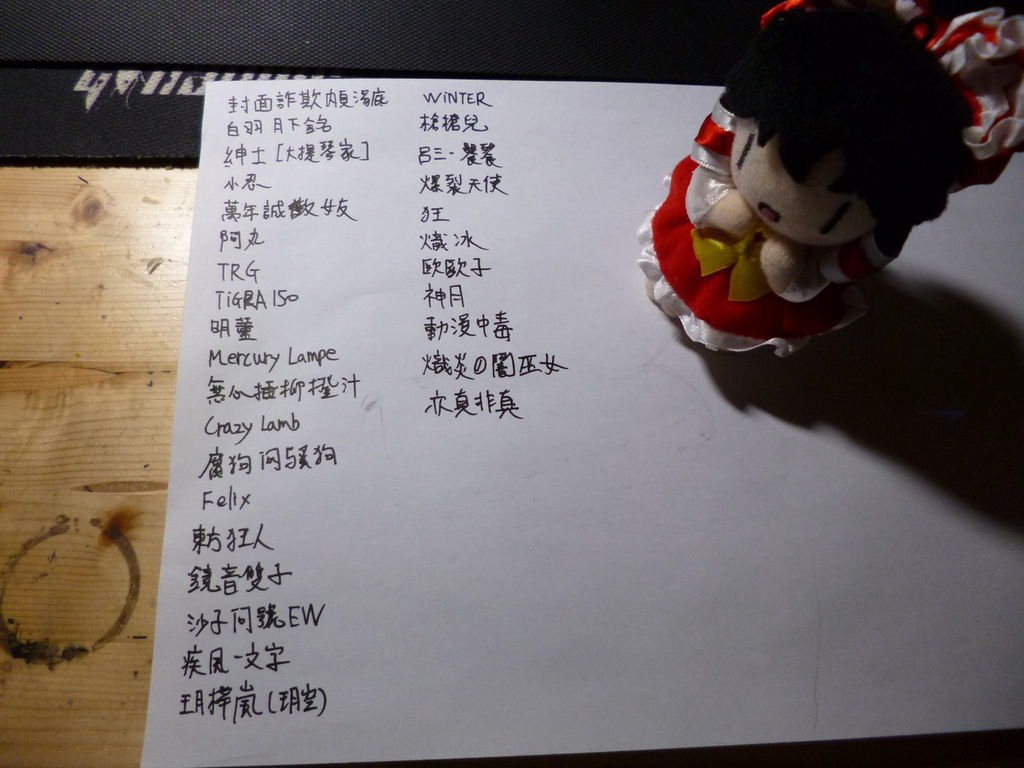 封面詐欺湯底
白羽月下銘
紳士[大提琴家]
小忍
萬年誠徵女友
阿丸
TRG
TIGRA150
明
Mercury Lampe
無心插柳橙汁
Crazy Lamb
腐狗
Felix
東方狂人
鏡音雙子
沙子問號EW
疾風一文字
玥樺嵐(玥空)
WINTER
槍槍兒
呂三一饕餮
爆裂天使
狂
熾冰
歐歐子
神月
動漫中毒
熾炎の闇巫女
亦真非真